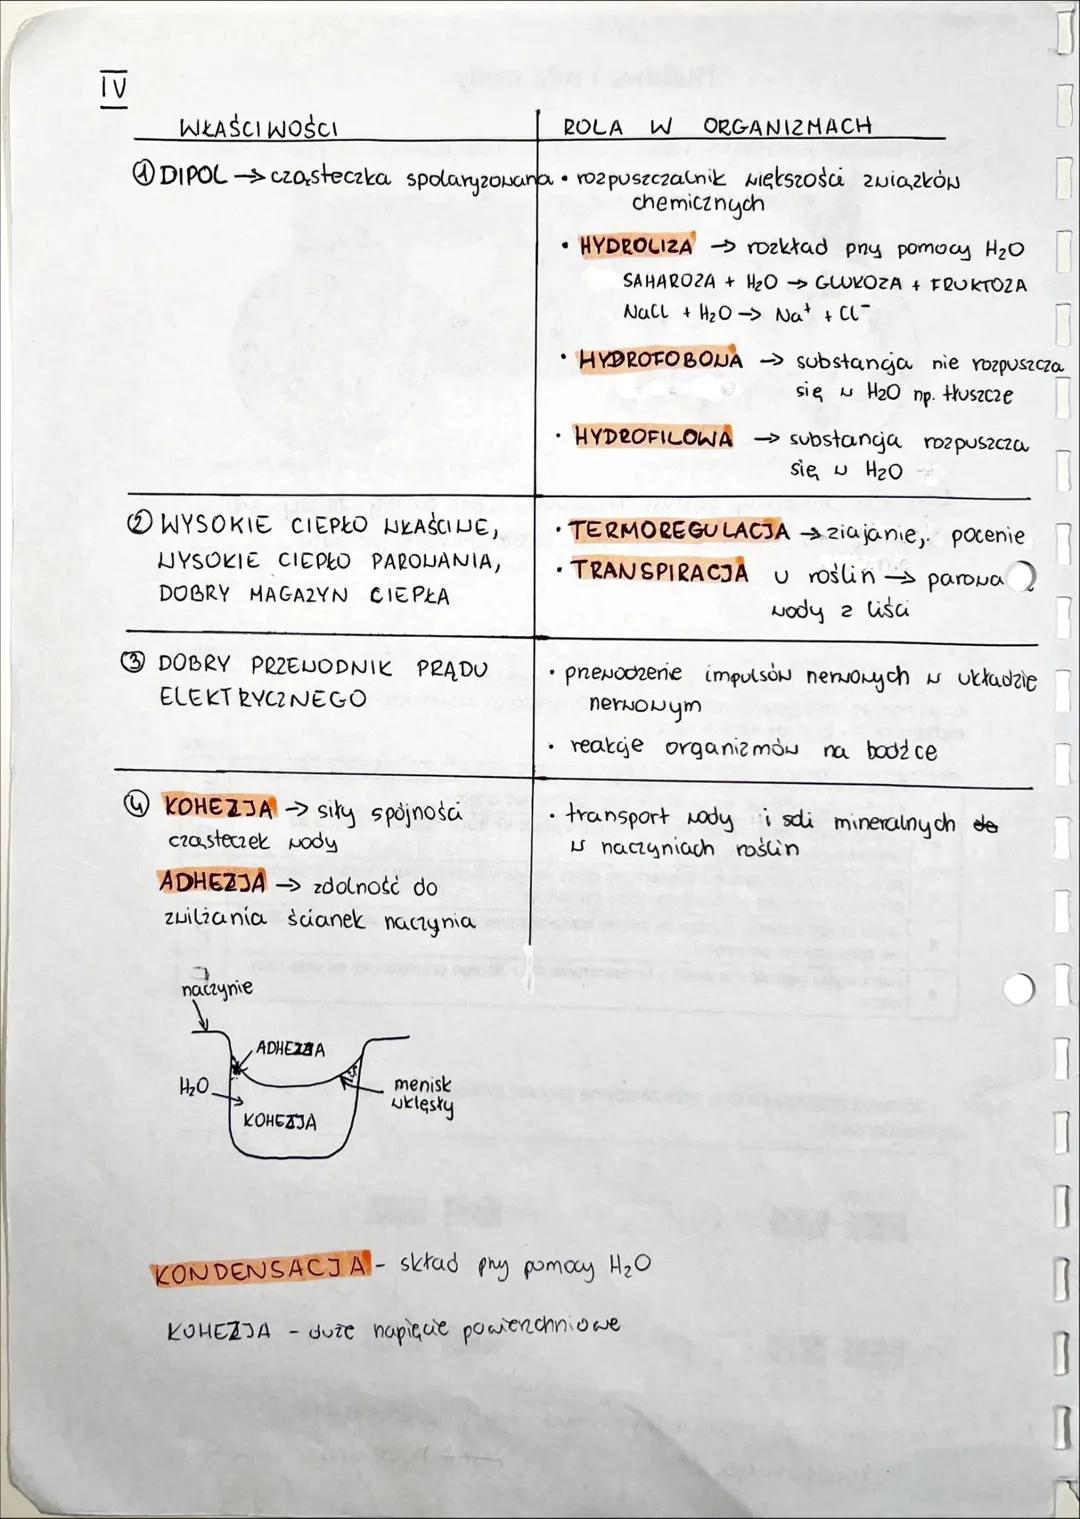 IV
WŁAŚCIWOŚCI
ROLA W ORGANIZMACH
① DIPOL → cząsteczka spolaryzowana
• rozpuszczalnik większości związków
chemicznych
• HYDROLIZA → rozkład przy pomocy H₂O
SAHAROZA + H₂O → GLUKOZA + FRUKTOZA
NaCl + H₂O → Na⁺ + Cl⁻
• HYDROFOBOWA → substancja nie rozpuszcza
się w H₂O np. tłuszcze
• HYDROFILOWA → substancja rozpuszcza
się w H₂O
② WYSOKIE CIEPŁO WŁAŚCIWE,
WYSOKIE CIEPŁO PAROWANIA,
DOBRY MAGAZYN CIEPŁA
• TERMOREGULACJA → ziajanie, pocenie
• TRANSPIRACJA u roślin →
wody z liści
③ DOBRY PRZEWODNIK PRĄDU
ELEKTRYCZNEGO
• przewodzenie impulsów nerwowych w układzie
nerwowym
• reakcje organizmów na bodźce
④ KOHEZJA → siły spójności
cząsteczek wody
ADHEZJA → zdolność do
zwilżania ścianek naczynia
• transport wody i soli mineralnych do
w naczyniach roślin
naczynie
ADHEZJA
H₂O
menisk
wklęsły
KOHEZJA
KONDENSACJA - skład przy pomocy H₂O
KOHEZJA - duże napięcie powierzchniowe